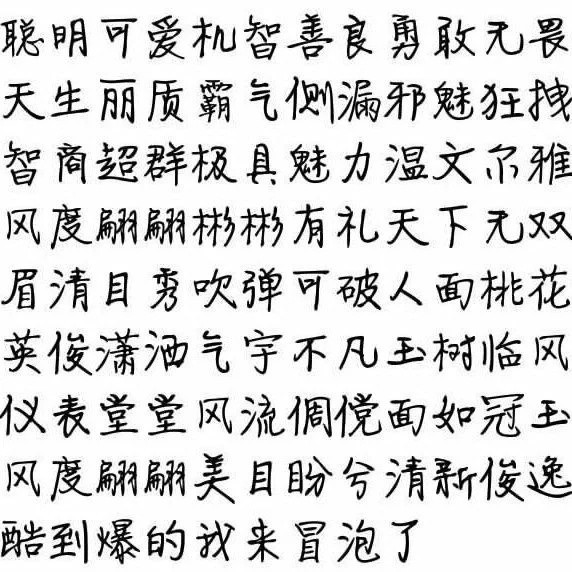 聪明可爱机智善良勇敢无畏
天生丽质霸气侧漏邪魅狂拽
智商超群极具魅力温文尔雅
风度翩翩彬彬有礼天下无双
眉清目秀吹弹可破人面桃花
英俊潇洒气宇不凡玉树临风
仪表堂堂风流倜傥面如冠玉
风度翩翩美目盼兮清新俊逸
酷到爆的我来冒泡了